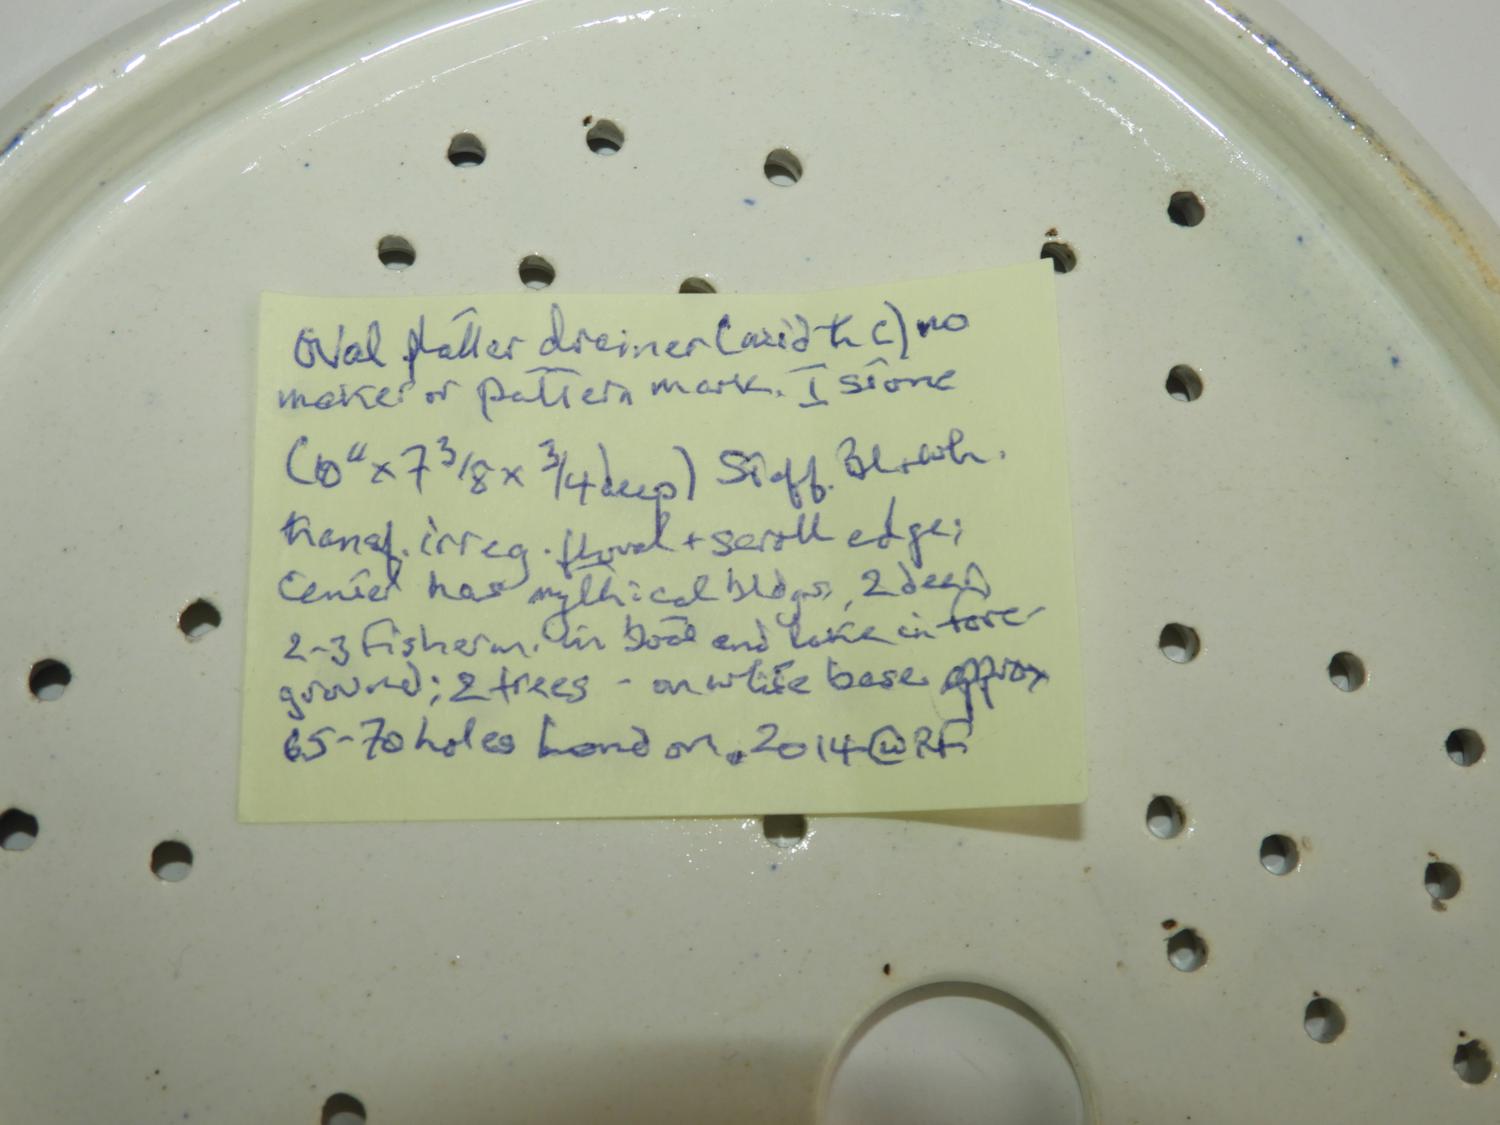 Oval platter drainer (mid 19th C) no
maker or pattern mark. I stone
(10" x 7 3/8 x 3/4 deep) Staff. Bl + wh.
transf. irreg. floral + scroll edge;
Center has mythical bldgs, 2 deer,
2-3 fisherm. in boat and lake in fore-
ground; 2 trees - on white base approx
65-70 holes 2014 @ RF